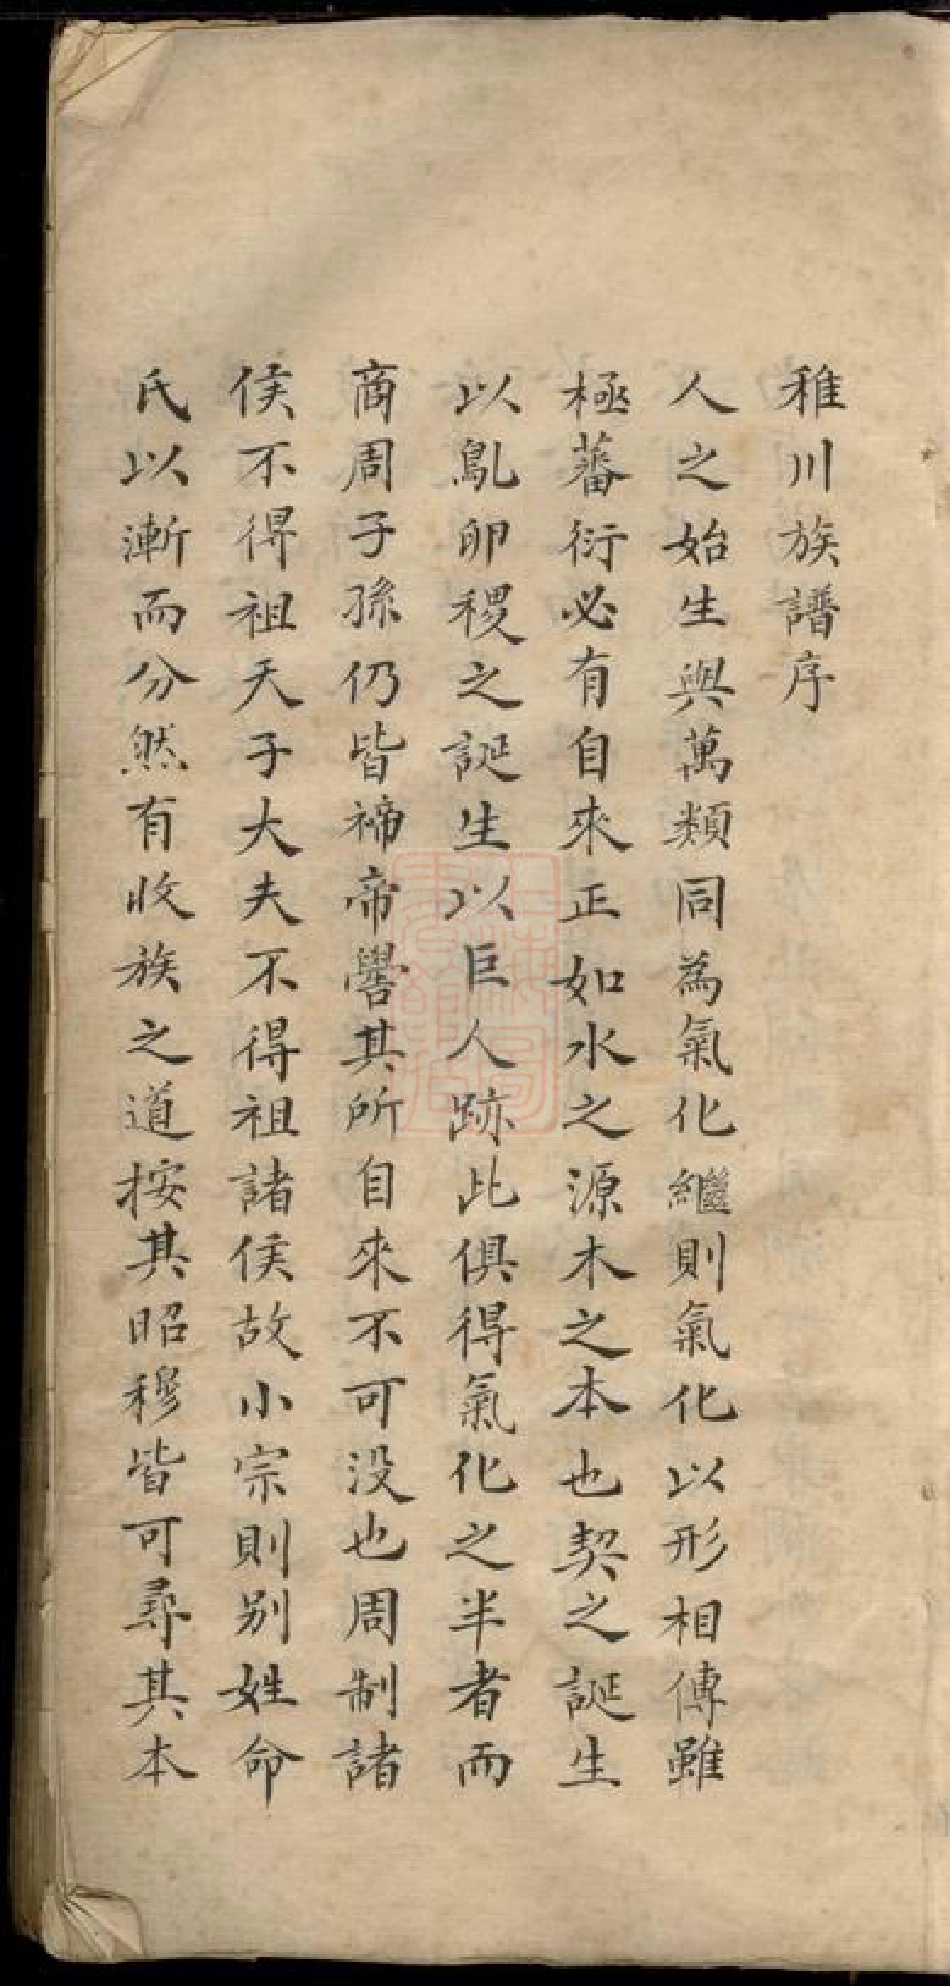 稚川族譜序
人之始生與萬類同為氣化繼則氣化以形相傳雖
極蕃衍必有自來正如水之源木之本也契之誕生
以鳦卵稷之誕生以巨人跡此俱得氣化之半者而
商周子孫仍皆禘帝嚳其所自來不可没也周制諸
侯不得祖天子大夫不得祖諸侯故小宗則别姓命
氏以漸而分然有收族之道按其昭穆皆可尋其本
上海圖書館藏